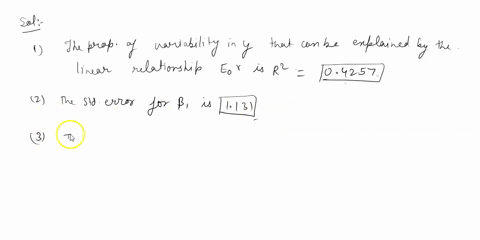 Sol:-
1) The prop. of variability in y that can be explained by the
linear relationship E0x is R² = 0.4257
(2) The std. error for β₁ is 1.131
(3) Th